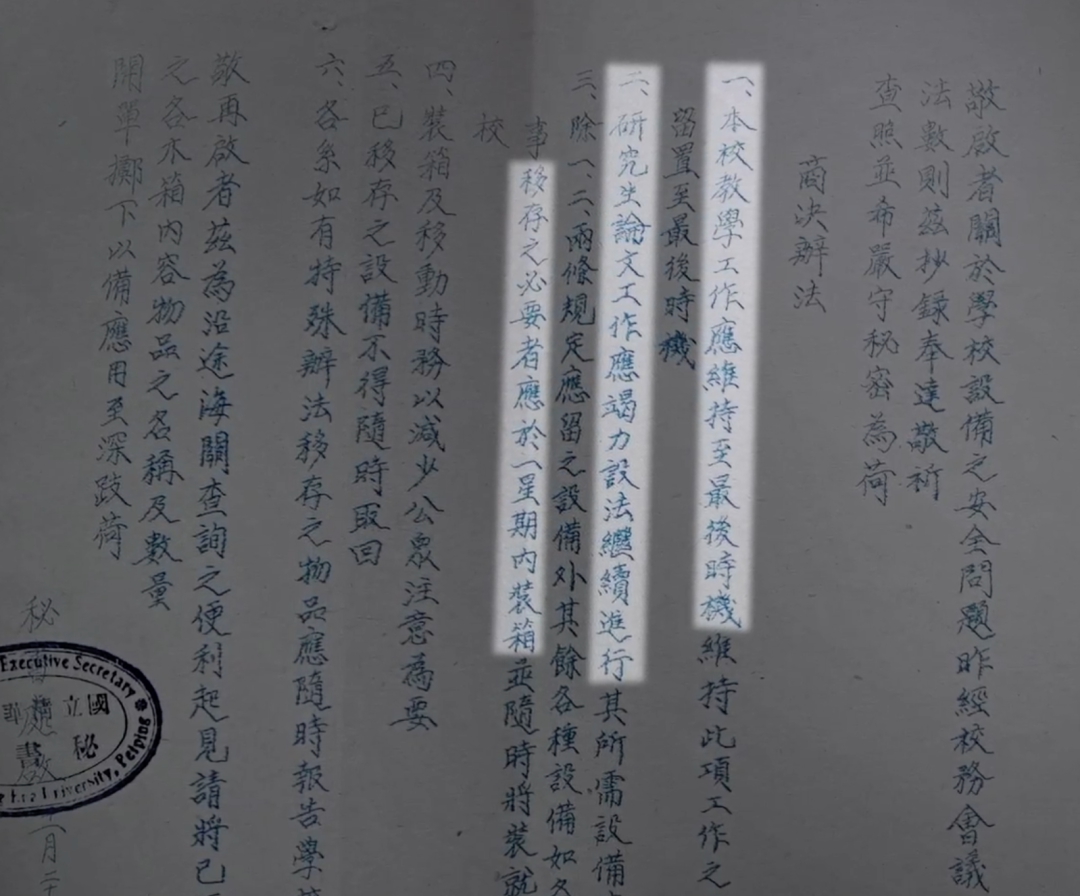 敬啟者關於學校設備之安全問題昨經校務會議
法數則茲抄録奉達敬祈
查照並希嚴守秘密為荷
商决辦法
一、本校教學工作應維持至最後時機維持此項工作之
留置至最後時機
二、研究生論文工作應竭力設法繼續進行其所需設備
三、除一、二、兩條規定應留之設備外其餘各種設備如
事移存之必要者應於一星期内裝箱並隨時將裝就
校
四、裝箱及移動時務以減少公衆注意為要
五、已移存之設備不得隨時取回
六、各系如有特殊辦法移存之物品應隨時報告學
敬再啟者茲為沿途海關查詢之便利起見請將已
之各木箱内容物品之名稱及數量
開單擲下以備應用至深跂荷
秘
Executive Secretary
國立
秘
University, Peiping
月二十